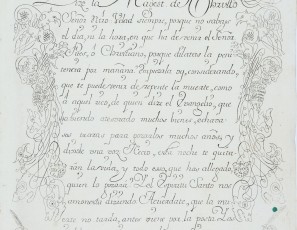 la Magest de
Señor Nro Velad siempre, porque no sabeys
el dia, ni la hora, en que ha de venir el Señor
Pues, ô Christiano, porque dilatas la peni
tencia por mañana empiesala oy, considerando,
que te puede venir de repente la muerte, como
â aquel rico, de quien dize el Evangelio, que
haviendo atesorado muchos bienes, echava
sus para muchos años, y
desde una voz Necio, esta noche te quita
rán la vida, y todo eso, que has allegado,
quien lo El Espiritu Santo nos
amonesta diziendo Acuerdate, que la mu
erte no tarda, antes viene por la posta La